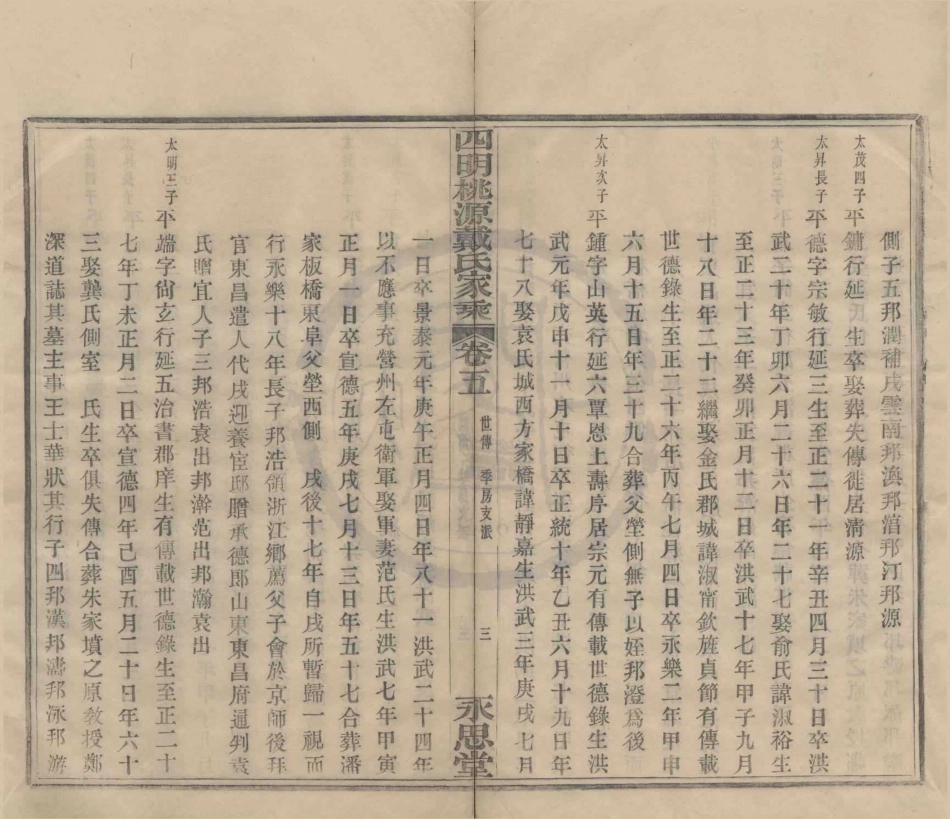 側子五邦潤補戍雲南邦渙邦涫邦汀邦源
太茂四子 平 鏞行延氏生卒娶葬失傳徙居清源
太昇長子 平 德字宗敏行延三生至正二十一年辛丑四月三十日卒洪
武二十年丁卯六月二十六日年二十七娶俞氏諱淑裕生
至正二十三年癸卯正月十三日卒洪武十七年甲子九月
十八日年二十二繼娶金氏郡城諱淑甯欽旌貞節有傳載
世德錄生至正二十六年丙午七月四日卒永樂二年甲申
六月十五日年三十九合葬父塋側無子以姪邦澄爲後
太昇次子 平 鍾字山英行延六覃恩上壽序居宗元有傳載世德錄生洪
武元年戊申十一月十日卒正統十年乙丑六月十九日年
七十八娶袁氏城西方家橋諱靜嘉生洪武三年庚戌七月
四明桃源戴氏家乘 卷五 世傳 季房支派 三 永思堂
一日卒景泰元年庚午正月四日年八十一洪武二十四年
以不應事充營州左屯衛軍娶軍妻范氏生洪武七年甲寅
正月一日卒宣德五年庚戌七月十三日年五十七合葬潘
家板橋東阜父塋西側 戍後十七年自戍所暫歸一視而
行永樂十八年長子邦浩領浙江鄉薦父子會於京師後拜
官東昌遣人代戍迎養宦邸贈承德郎山東東昌府通判袁
氏贈宜人子三邦浩袁出邦澣范出邦瀚袁出
太明三子 平 端字尙玄行延五治書郡庠生有傳載世德錄生至正二十
七年丁未正月二日卒宣德四年己酉五月二十日年六十
三娶龔氏側室 氏生卒俱失傳合葬朱家墳之原敎授鄭
深道誌其墓主事王士華狀其行子四邦漢邦濤邦泳邦游